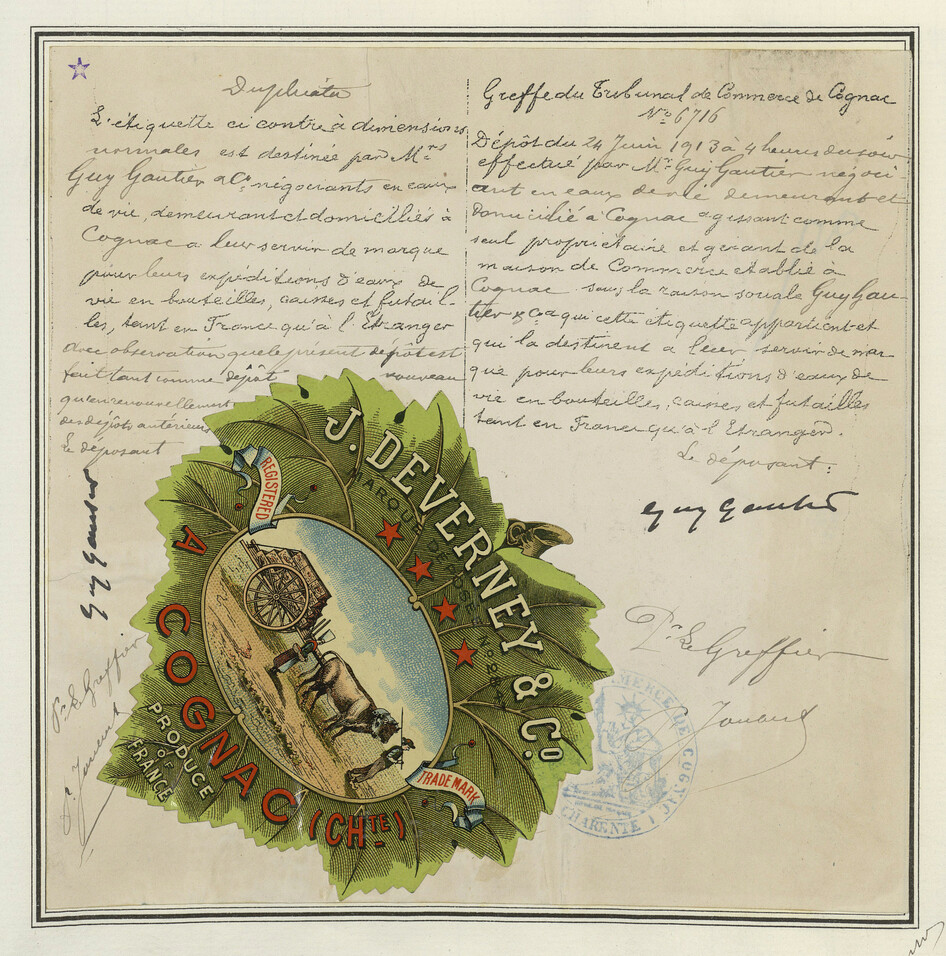 Duplicata
L'étiquette ci contre à dimensions
normales est destinée par Mrs
Guy Gautier & Co négociants en eaux
de vie, demeurant et domiciliés à
Cognac a leur servir de marque
pour leurs expéditions d'eaux de
vie en bouteilles, caisses et futail-
les, tant en France qu'à l'Etranger
avec observation que le présent dépôt est
fait tant comme dépôt nouveau
qu'en renouvellement
des dépôts antérieurs
Le déposant
Guy Gautier
Pr Le Greffier
Greffe du Tribunal de Commerce de Cognac
No 6716
Dépôt du 24 Juin 1913 à 4 heures du soir
effectué par Mr Guy Gautier négoci
ant en eaux de vie demeurant et
domicilié à Cognac agissant comme
seul propriétaire et gérant de la
maison de Commerce établie à
Cognac sous la raison sociale Guy Gau-
tier & Co a qui cette étiquette appartient et
qui la destinent a leur servir de mar
que pour leurs expéditions d'eaux de
vie en bouteilles, caisses et futailles
tant en France qu'à l'Etranger.
Le déposant:
Guy Gautier
Pr Le Greffier
J. DEVERNEY & Co
MARQUE DEPOSEE No
REGISTERED
A COGNAC (CHTE)
PRODUCE
OF
FRANCE
TRADE MARK
COMMERCE DE COGNAC
CHARENTE